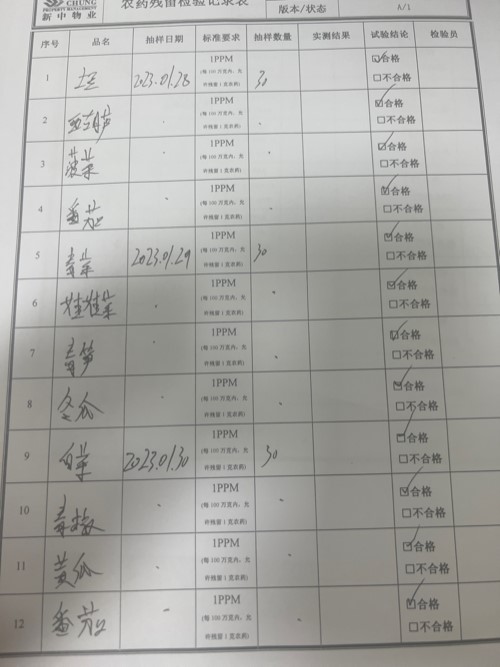 CHUNG
PROPERTY MANAGEMENT
新中物业
农药残留检验记录表
版本/状态 A/1
序号 品名 抽样日期 标准要求 抽样数量 实测结果 试验结论 检验员
1 土豆 2023.01.28 1PPM (每100万克内,允许残留1克农药) 30 ☑合格 □不合格
2 西葫芦 · 1PPM (每100万克内,允许残留1克农药) · ☑合格 □不合格
3 菠菜 · 1PPM (每100万克内,允许残留1克农药) · ☑合格 □不合格
4 番茄 · 1PPM (每100万克内,允许残留1克农药) · ☑合格 □不合格
5 青菜 2023.01.29 1PPM (每100万克内,允许残留1克农药) 30 ☑合格 □不合格
6 娃娃菜 · 1PPM (每100万克内,允许残留1克农药) · ☑合格 □不合格
7 青笋 · 1PPM (每100万克内,允许残留1克农药) · ☑合格 □不合格
8 冬瓜 · 1PPM (每100万克内,允许残留1克农药) · ☑合格 □不合格
9 白菜 2023.01.30 1PPM (每100万克内,允许残留1克农药) 30 ☑合格 □不合格
10 青椒 · 1PPM (每100万克内,允许残留1克农药) · ☑合格 □不合格
11 黄瓜 · 1PPM (每100万克内,允许残留1克农药) · ☑合格 □不合格
12 番茄 · 1PPM (每100万克内,允许残留1克农药) · ☑合格 □不合格